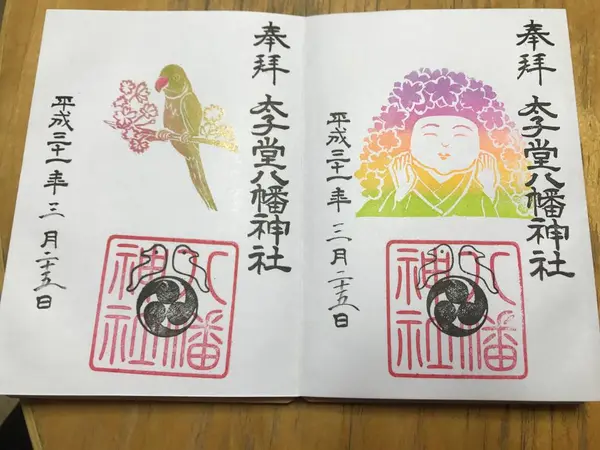 奉拝
太子堂八幡神社
平成三十一年三月二十五日
八幡
神社
奉拝
太子堂八幡神社
平成三十一年三月二十五日
八幡
神社